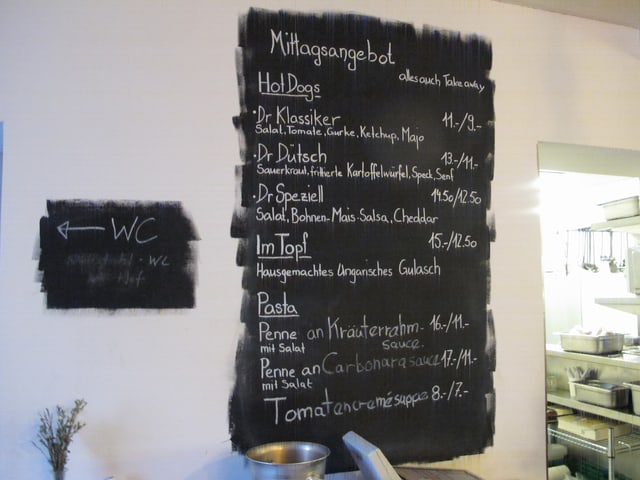 Mittagsangebot
alles auch Take away
Hot Dogs
·Dr Klassiker 11.-/9.-
Salat, Tomate, Gurke, Ketchup, Majo
·Dr Dütsch 13.-/11.-
Sauerkraut, frittierte Kartoffelwürfel, Speck, Senf
·Dr Speziell 14.50/12.50
Salat, Bohnen-Mais-Salsa, Cheddar
Im Topf 15.-/12.50
Hausgemachtes Ungarisches Gulasch
Pasta
Penne an Kräuterrahm- 16.-/11.-
mit Salat sauce
Penne an Carbonara sauce 17.-/11.-
mit Salat
Tomatencremesuppe 8.-/7.-
← WC
WC